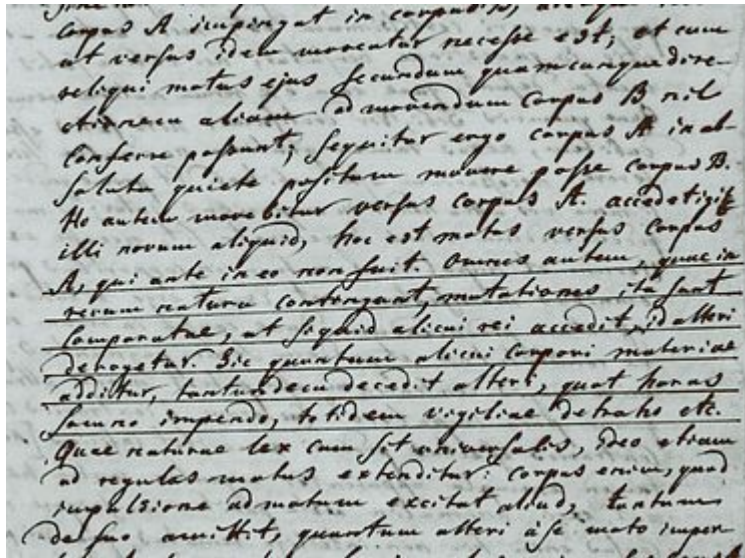 corpus A impingat in corpus B,
ut versus idem moveatur necesse est; et cum
reliqui motus ejus secundum quamcunque dire-
ctionem aliam ad movendum corpus B nil
conferre possunt; sequitur ergo corpus A in ab-
soluta quiete positum movere posse corpus B.
Ho autem movebitur versus corpus A. accedet igit
illi novum aliquid, hoc est motus versus corpus
A, qui ante in eo non fuit. Omnes autem, quae in
rerum natura contingunt, mutationes ita sunt
comparatae, ut si quid alicui rei accedit, id alteri
derogetur. Sic quantum alicui corpori materiae
additur, tantundem decedit alteri, quot horas
somno impendo, totidem vigiliae detraho etc.
Quae naturae lex cum sit universalis, ideo etiam
ad regulas motus extenditur: corpus enim, quod
impulsione ad motum excitat aliud, tantum
de suo amittit, quantum alteri à se moto imper-